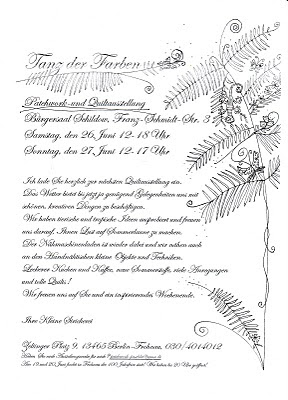 Tanz der Farben
Patchwork-und Quiltausstellung
Bürgersaal Schildow, Franz-Schmidt-Str. 3
Samstag, den 26. Juni 12-18 Uhr
Sonntag, den 27. Juni 12-17 Uhr
Ich lade Sie herzlich zur nächsten Quiltausstellung ein.
Das Wetter bietet bis jetzt ja genügend Gelegenheiten uns mit
schönen, kreativen Dingen zu beschäftigen.
Wir haben tierische und tropische Ideen ausprobiert und freuen
uns darauf, Ihnen Lust auf Sommerlaune zu machen.
Der Nähmaschinenladen ist wieder dabei und wir nähen auch
an den Handnähtischen kleine Objekte und Techniken.
Leckerer Kuchen und Kaffee, neue Sommerstoffe, viele Anregungen
und tolle Quilts!
Wir freuen uns auf Sie und ein inspirierendes Wochenende.
Ihre Kleine Stricherei
Zeltinger Platz 9, 13465 Berlin-Frohnau, 030/4014012